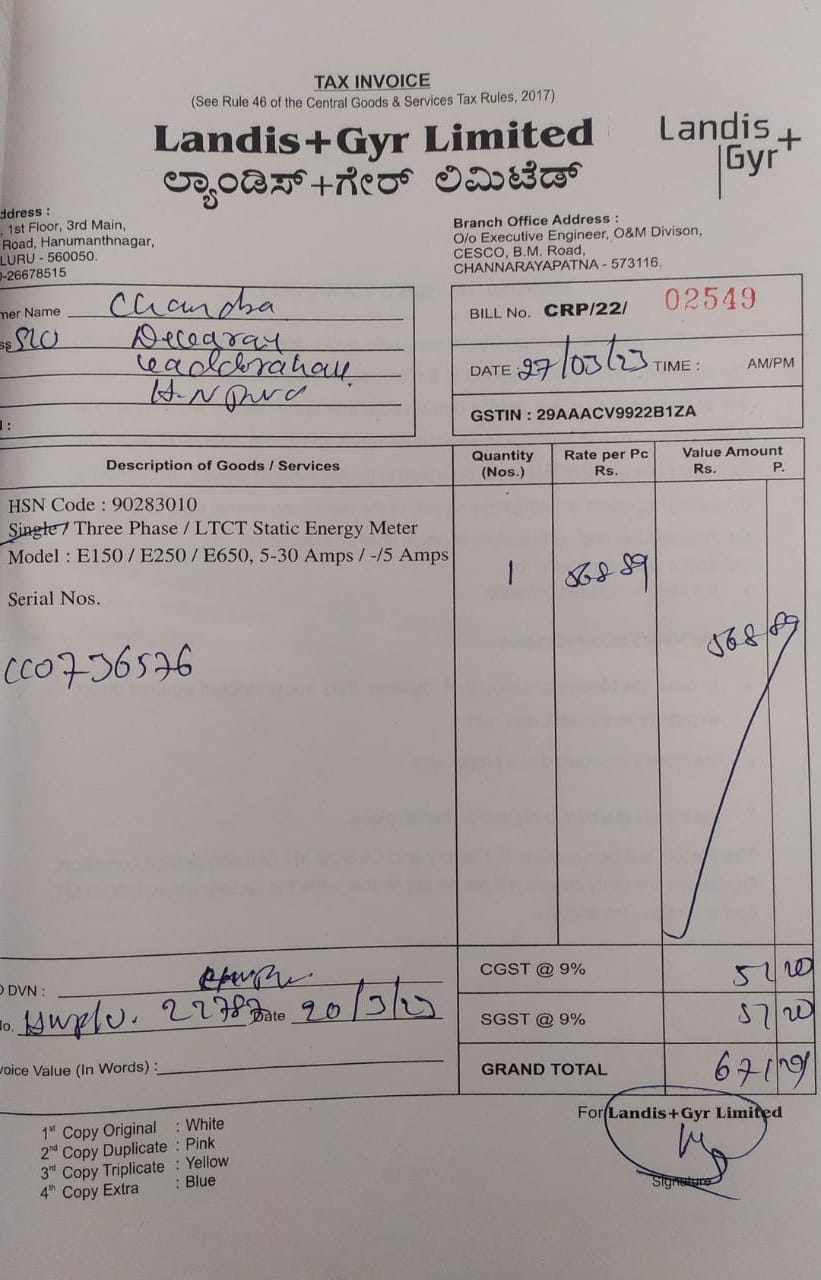 TAX INVOICE
(See Rule 46 of the Central Goods & Services Tax Rules, 2017)
Landis+Gyr Limited
ಲ್ಯಾಂಡಿಸ್+ಗೇರ್ ಲಿಮಿಟೆಡ್
Landis+
Gyr
ddress :
, 1st Floor, 3rd Main,
Road, Hanumanthnagar,
LURU - 560050.
-26678515
Branch Office Address :
O/o Executive Engineer, O&M Divison,
CESCO, B.M. Road,
CHANNARAYAPATNA - 573116.
mer Name Chandra
ss S/O
BILL No. CRP/22/ 02549
DATE : 27/03/23 TIME : AM/PM
GSTIN : 29AAACV9922B1ZA
Description of Goods / Services Quantity (Nos.) Rate per Pc Rs. Value Amount Rs. P.
HSN Code : 90283010
Single / Three Phase / LTCT Static Energy Meter
Model : E150 / E250 / E650, 5-30 Amps / -/5 Amps
1 568 89
Serial Nos.
568 89
CC0736576
DVN :
CGST @ 9% 51 20
No. 22787 Date 20/3/23
SGST @ 9% 51 20
voice Value (In Words) :
GRAND TOTAL 671 29
For Landis+Gyr Limited
Signature
1st Copy Original : White
2nd Copy Duplicate : Pink
3rd Copy Triplicate : Yellow
4th Copy Extra : Blue